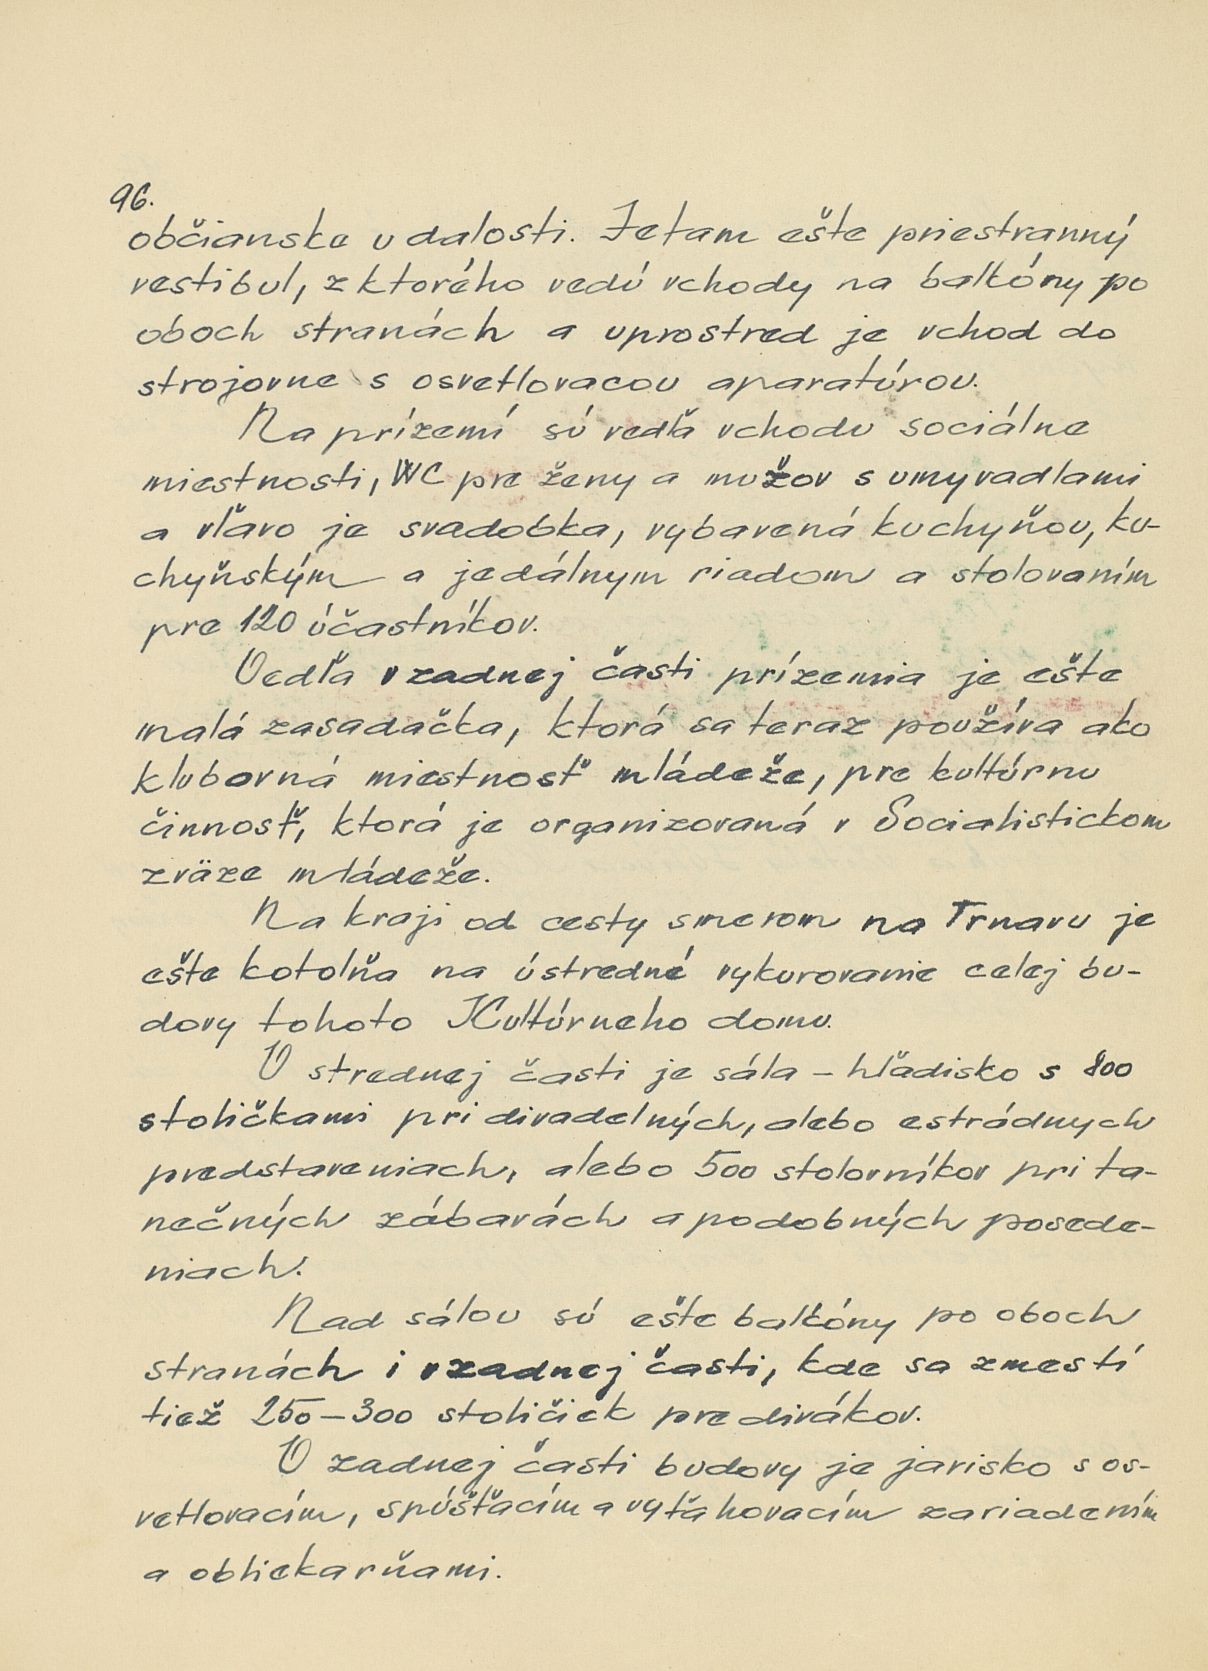 96.
občianske udalosti. Jetam ešte priestranný
vestibul, z ktorého vedú vchody na balkóny po
oboch stranách a uprostred je vchod do
strojovne s osvetlovacou aparatúrou.
Na prízemí sú vedľa vchodu sociálne
miestnosti, WC pre ženy a mužov s umyvadlami
a vľavo je svadobka, vybavená kuchyňou, ku-
chyňským a jedálnym riadom a stolovaním
pre 120 účastníkov.
Vedľa vzadnej časti prízemia je ešte
malá zasadačka, ktorá sa teraz používa ako
klubovná miestnosť mládeže, pre kultúrnu
činnosť, ktorá je organizovaná v Socialistickom
zväze mládeže.
Na kraji od cesty smerom na Trnavu je
ešte kotolňa na ústredné vykurovanie celej bu-
dovy tohoto Kultúrneho domu.
V strednej časti je sála - hľadisko s 800
stoličkami pri divadelných, alebo estrádnych
predstaveniach, alebo 500 stolovníkov pri ta-
nečných zábavách a podobných posede-
niach.
Nad sálou sú ešte balkóny po oboch
stranách i vzadnej časti, kde sa zmestí
tiež 250-300 stoličiek pre divákov.
V zadnej časti budovy je javisko s os-
vetlovacím, spúšťacím a vyťahovacím zariadením
a obliekarňami.